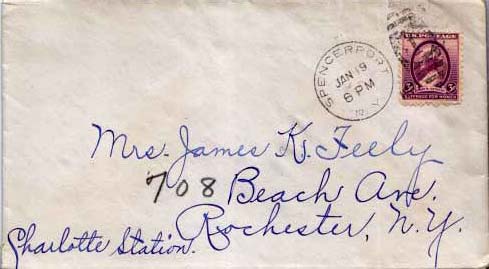 U.S. POSTAGE
3¢ 3¢
SUFFRAGE FOR WOMEN
SPENCERPORT
JAN 19
6 PM
N.Y.
Mrs. James K. Feely
708 Beach Ave.
Rochester, N.Y.
Charlotte Station.